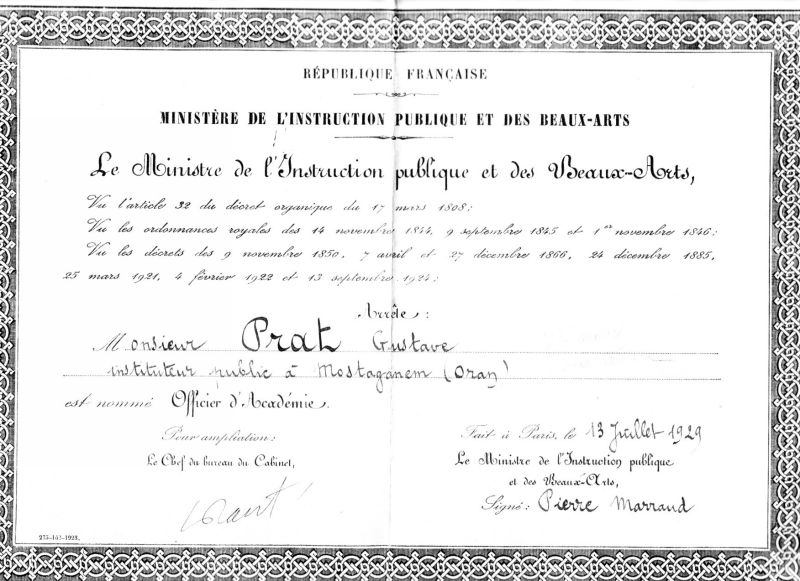 RÉPUBLIQUE FRANÇAISE
MINISTÈRE DE L'INSTRUCTION PUBLIQUE ET DES BEAUX-ARTS
Le Ministre de l'Instruction publique et des Beaux-Arts,
Vu l'article 32 du décret organique du 17 mars 1808;
Vu les ordonnances royales des 14 novembre 1844, 9 septembre 1845 et 1er novembre 1846;
Vu les décrets des 9 novembre 1850, 7 avril et 27 décembre 1866, 24 décembre 1885,
25 mars 1921, 4 février 1922 et 13 septembre 1924;
Arrête:
Monsieur Prat Gustave
instituteur public à Mostaganem (Oran)
est nommé Officier d'Académie.
Pour ampliation:
Le Chef du bureau du Cabinet,
Fait à Paris, le 13 Juillet 1929
Le Ministre de l'Instruction publique
et des Beaux-Arts,
Signé: Pierre Marraud
275-103-1928.